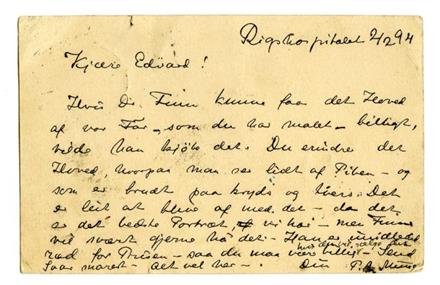 Rigshospitalet 2/2 94
Kjære Edvard!
Hvis Dr. Finn kunne faa det Hoved
af vor Far – som du har malet – billigt,
vilde han kjöbe det. Du erindrer det
Hoved, hvorpaa man ser lidt af Piben – og
som er brudt paa kryds og tvers. Det
er leit at blive af med det – da det
er det bedste Portræt, vi har – men Finn
vil svært gjerne ha det. Han er
ræd for Prisen – saa du maa være billig. Send
Svar snarest – Alt vel her –. Din P. A. Munch